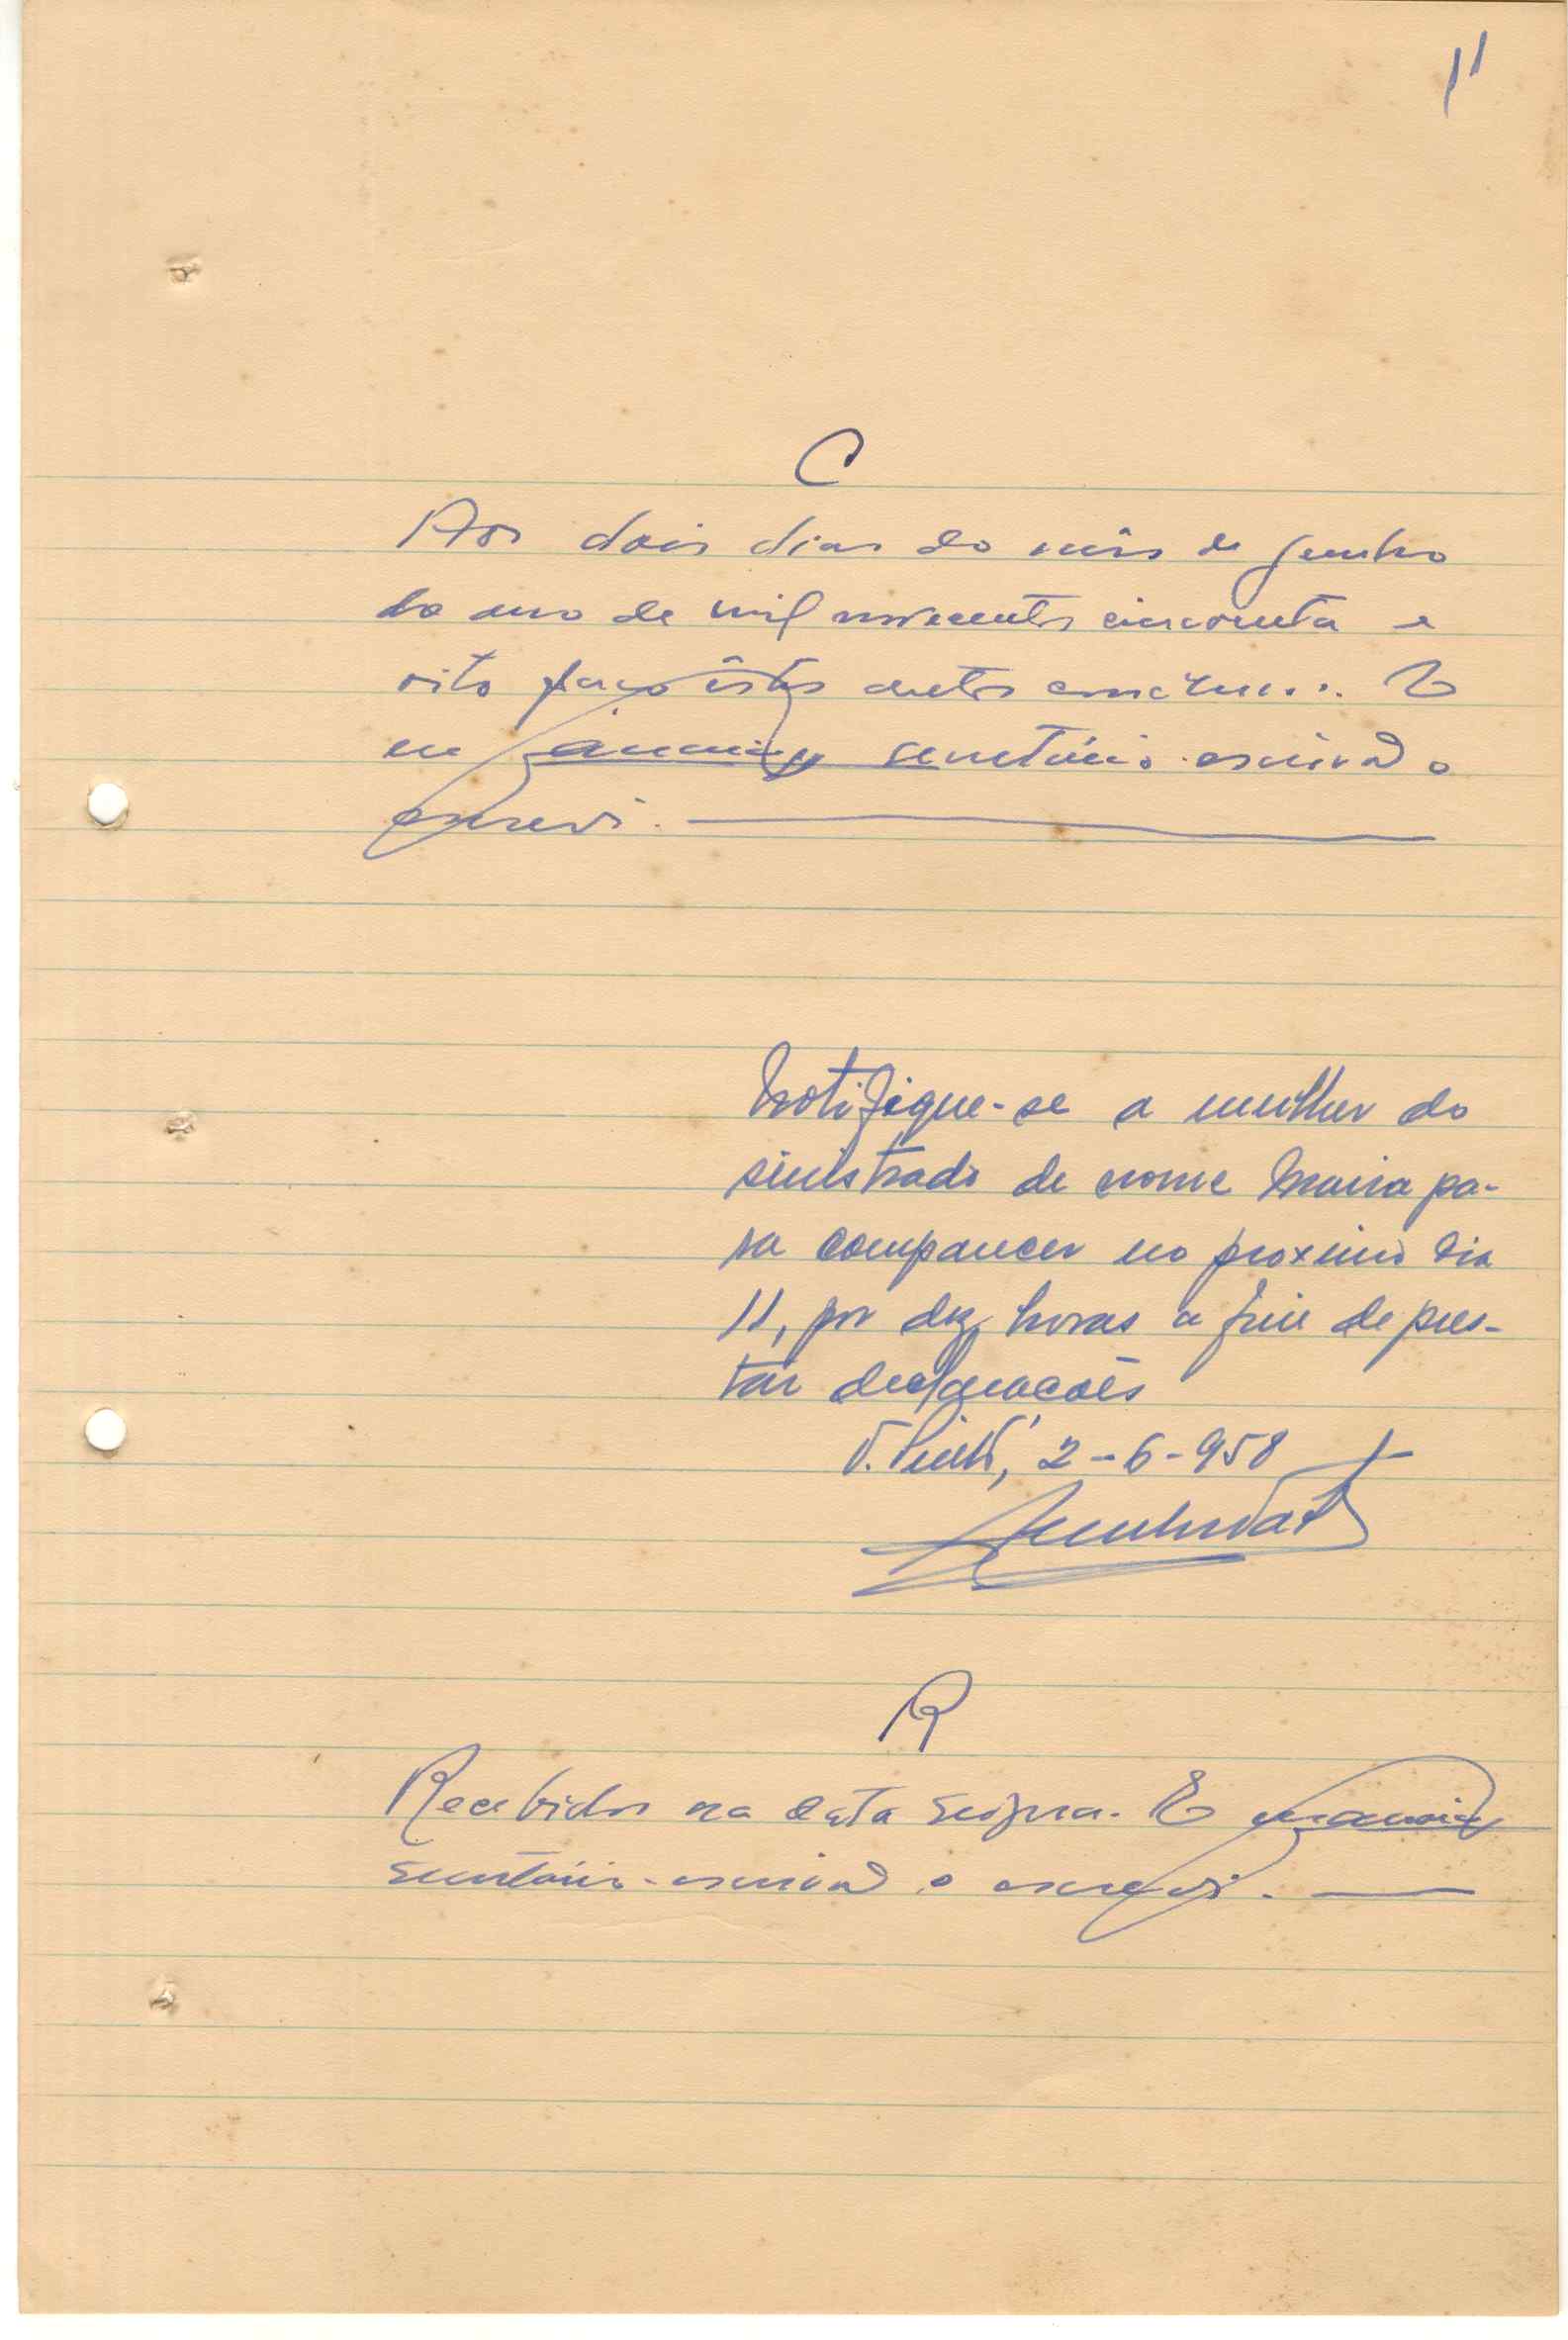 11
C
Aos dois dias do mês de Junho
do ano de mil novecentos cincoenta e
oito faço êstes autos conclusos. E
eu secretário-escrivão o
escrevi.
Notifique-se a mulher do
sinistrado de nome Maria pa-
ra comparecer no proximo dia
11, por dez horas a fim de pres-
tar declarações
2-6-958
R
Recebidos na data supra. E
secretário-escrivão o escrevi.